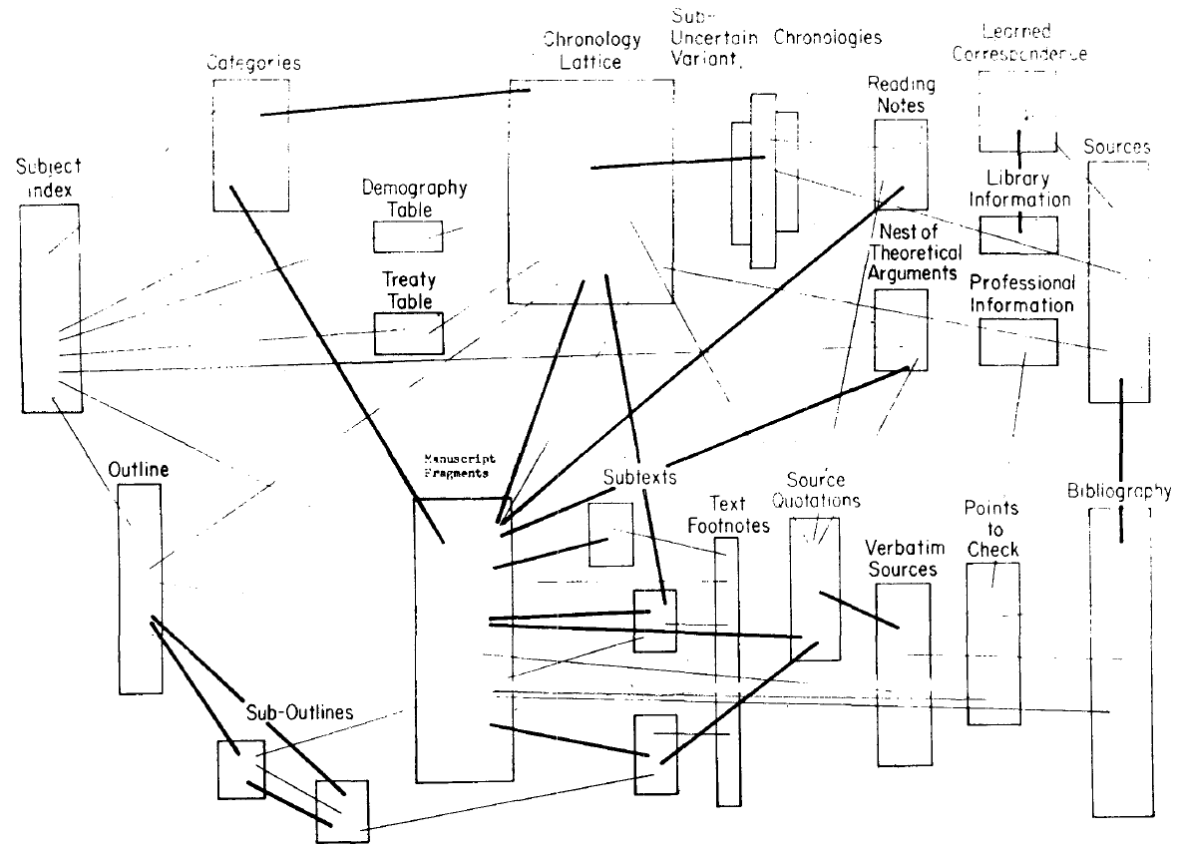 Categories
Chronology
Lattice
Sub-
Uncertain
Variant,
Chronologies
Learned
Correspondence
Reading
Notes
Sources
Subject
Index
Demography
Table
Library
Information
Nest of
Theoretical
Arguments
Treaty
Table
Professional
Information
Outline
Manuscript
Fragments
Subtexts
Text
Footnotes
Source
Quotations
Verbatim
Sources
Points
to
Check
Bibliography
Sub-Outlines